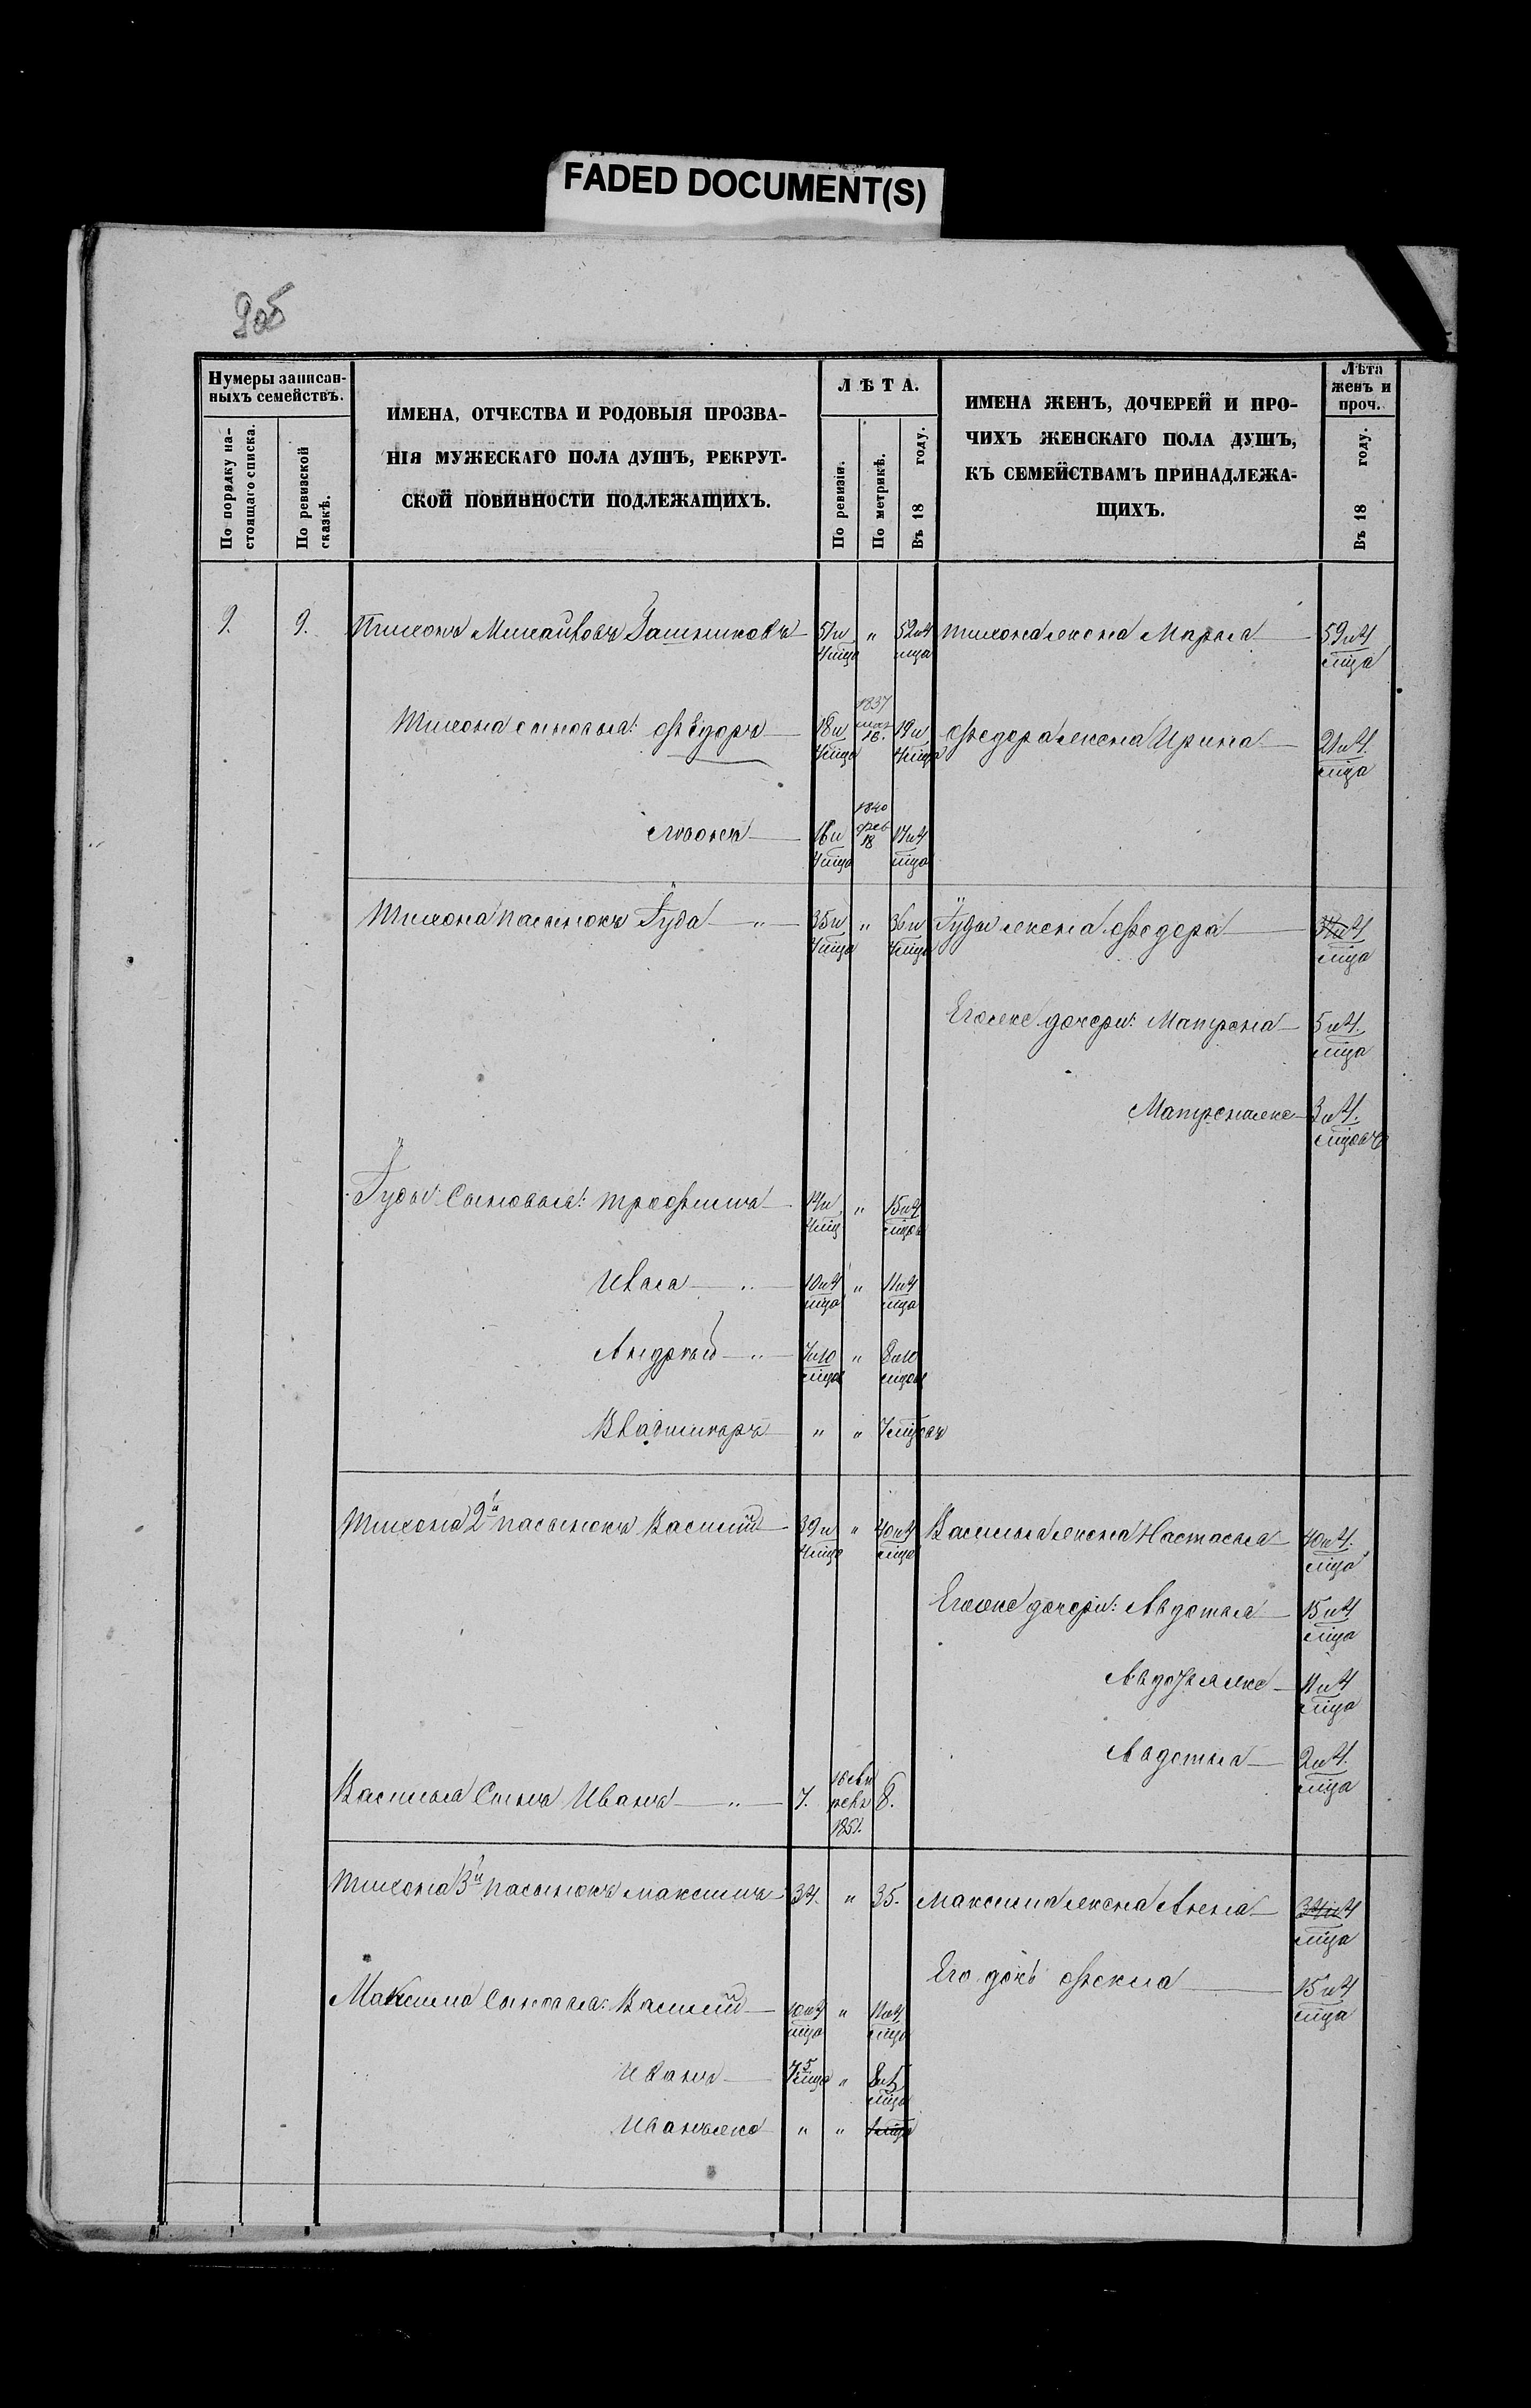 FADED DOCUMENT(S)
9об
Нумеры записан-
ныхъ семействъ.
По порядку на-
стоящаго списка.
По ревизской
сказкѣ.
ИМЕНА, ОТЧЕСТВА И РОДОВЫЯ ПРОЗВА-
НІЯ МУЖЕСКАГО ПОЛА ДУШЪ, РЕКРУТ-
СКОЙ ПОВИННОСТИ ПОДЛЕЖАЩИХЪ.
ЛѢТА.
По ревизіи.
По метрикѣ.
Въ 18 году.
ИМЕНА ЖЕНЪ, ДОЧЕРЕЙ И ПРО-
ЧИХЪ ЖЕНСКАГО ПОЛА ДУШЪ,
КЪ СЕМЕЙСТВАМЪ ПРИНАДЛЕЖА-
ЩИХЪ.
Лѣта
женъ и
проч.
Въ 18 году.
9. 9. Тихонъ Михайловъ 51 и 4 мца " 52 и 4 мца Тихона жена Марья 59 и 4 мца
Тихона сыновья: Ѳёдоръ 18 и 4 мца 1837 16. 19 и 4 мца Ѳедора жена Ирина 21 и 4 мца
16 и 4 мца 1840 фев 18 17 и 4 мца
Тихона пасынокъ Іуда " 35 и 4 мца " 36 и 4 мца Іуды жена Ѳедора и 4 мца
Его же дочери: Матрена 5 и 4. мца
Матрена же 3 и 4. мцовъ
Іуды сыновья: Трофимъ 14 и 4 мц " 15 и 4 мцов
Ивана " 10 и 4 мца " 11 и 4 мца
Андрей " 7 и 10 мцов " 8 и 10 мцов
Владимиръ " " 7 мцовъ
Тихона 2й пасынокъ Василій 39 и 4 мца " 40 и 4 мца Василья жена Настасья 40 и 4. мца
Его же дочери: Авдотья 15 и 4 мца
Авдотья же 11 и 4 мца
Авдотья 2 и 4. мца
Василья сынъ Иванъ " 7. 1851. 8.
Тихона 3й пасынокъ Максимъ 34. " 35. Максима жена Анна 34 и 4 мца
Его дочь Ѳекла 15 и 4 мца
Максима сыновья: Василій 10 и 4 мца " 11 и 4 мца
Иванъ 7 5 мца " 8 и 5 мца
Иванъ же " "